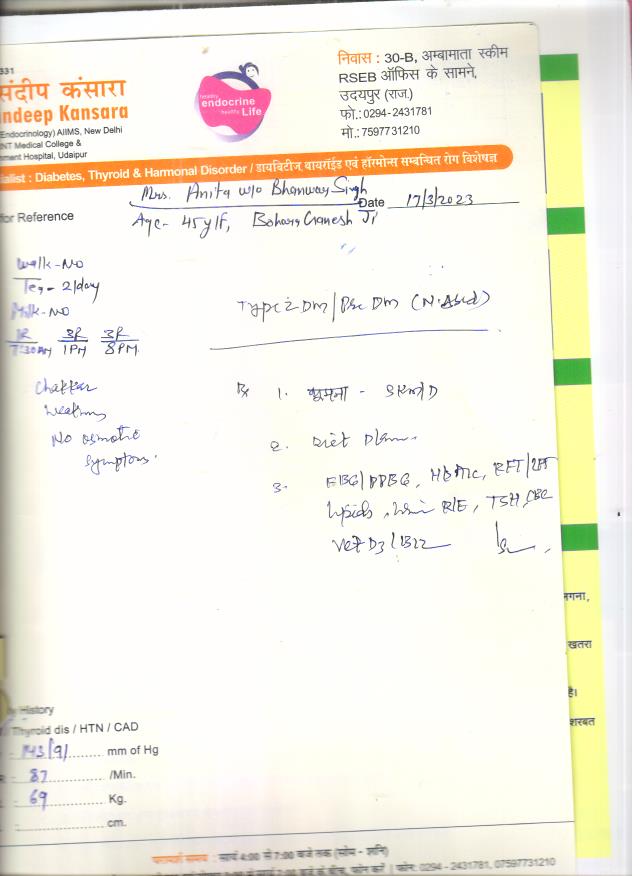 331
संदीप कंसारा
ndeep Kansara
Endocrinology) AIIMS, New Delhi
NT Medical College &
nment Hospital, Udaipur
healthy
endocrine
healthy Life
निवास : 30-B, अम्बामाता स्कीम
RSEB ऑफिस के सामने,
उदयपुर (राज.)
फो.:0294-2431781
मो.:7597731210
ialist : Diabetes, Thyroid & Harmonal Disorder / डायबिटीज थायरॉईड एवं हॉरमोन्स सम्बन्धित रोग विशेषज्ञ
Mrs. Anita w/o Bhanwar Singh
for Reference
Date 17/3/2023
Age- 45y/F, Bohara Ganesh Ji
Walk-NO
Tea- 2/day
Milk-NO
7:30AM 1PM 8PM
Type 2 DM /
Chakkar
Weakness
No osmotic
symptoms.
Rx 1. घूमना -
2. Diet Plan
3. FBG/PPBG, HbA1c, RFT/LFT
Lipids, Urine R/E, TSH, CBC
Vit D3/B12
लगना,
खतरा
है।
शरबत
History
Thyroid dis / HTN / CAD
143/91 mm of Hg
87 /Min.
69 Kg.
cm.
परामर्श समय : सायं 4:00 से 7:00 बजे तक (सोम - शनि)
बजे के बीच, फोन करें | फोन: 0294 - 2431781, 07597731210